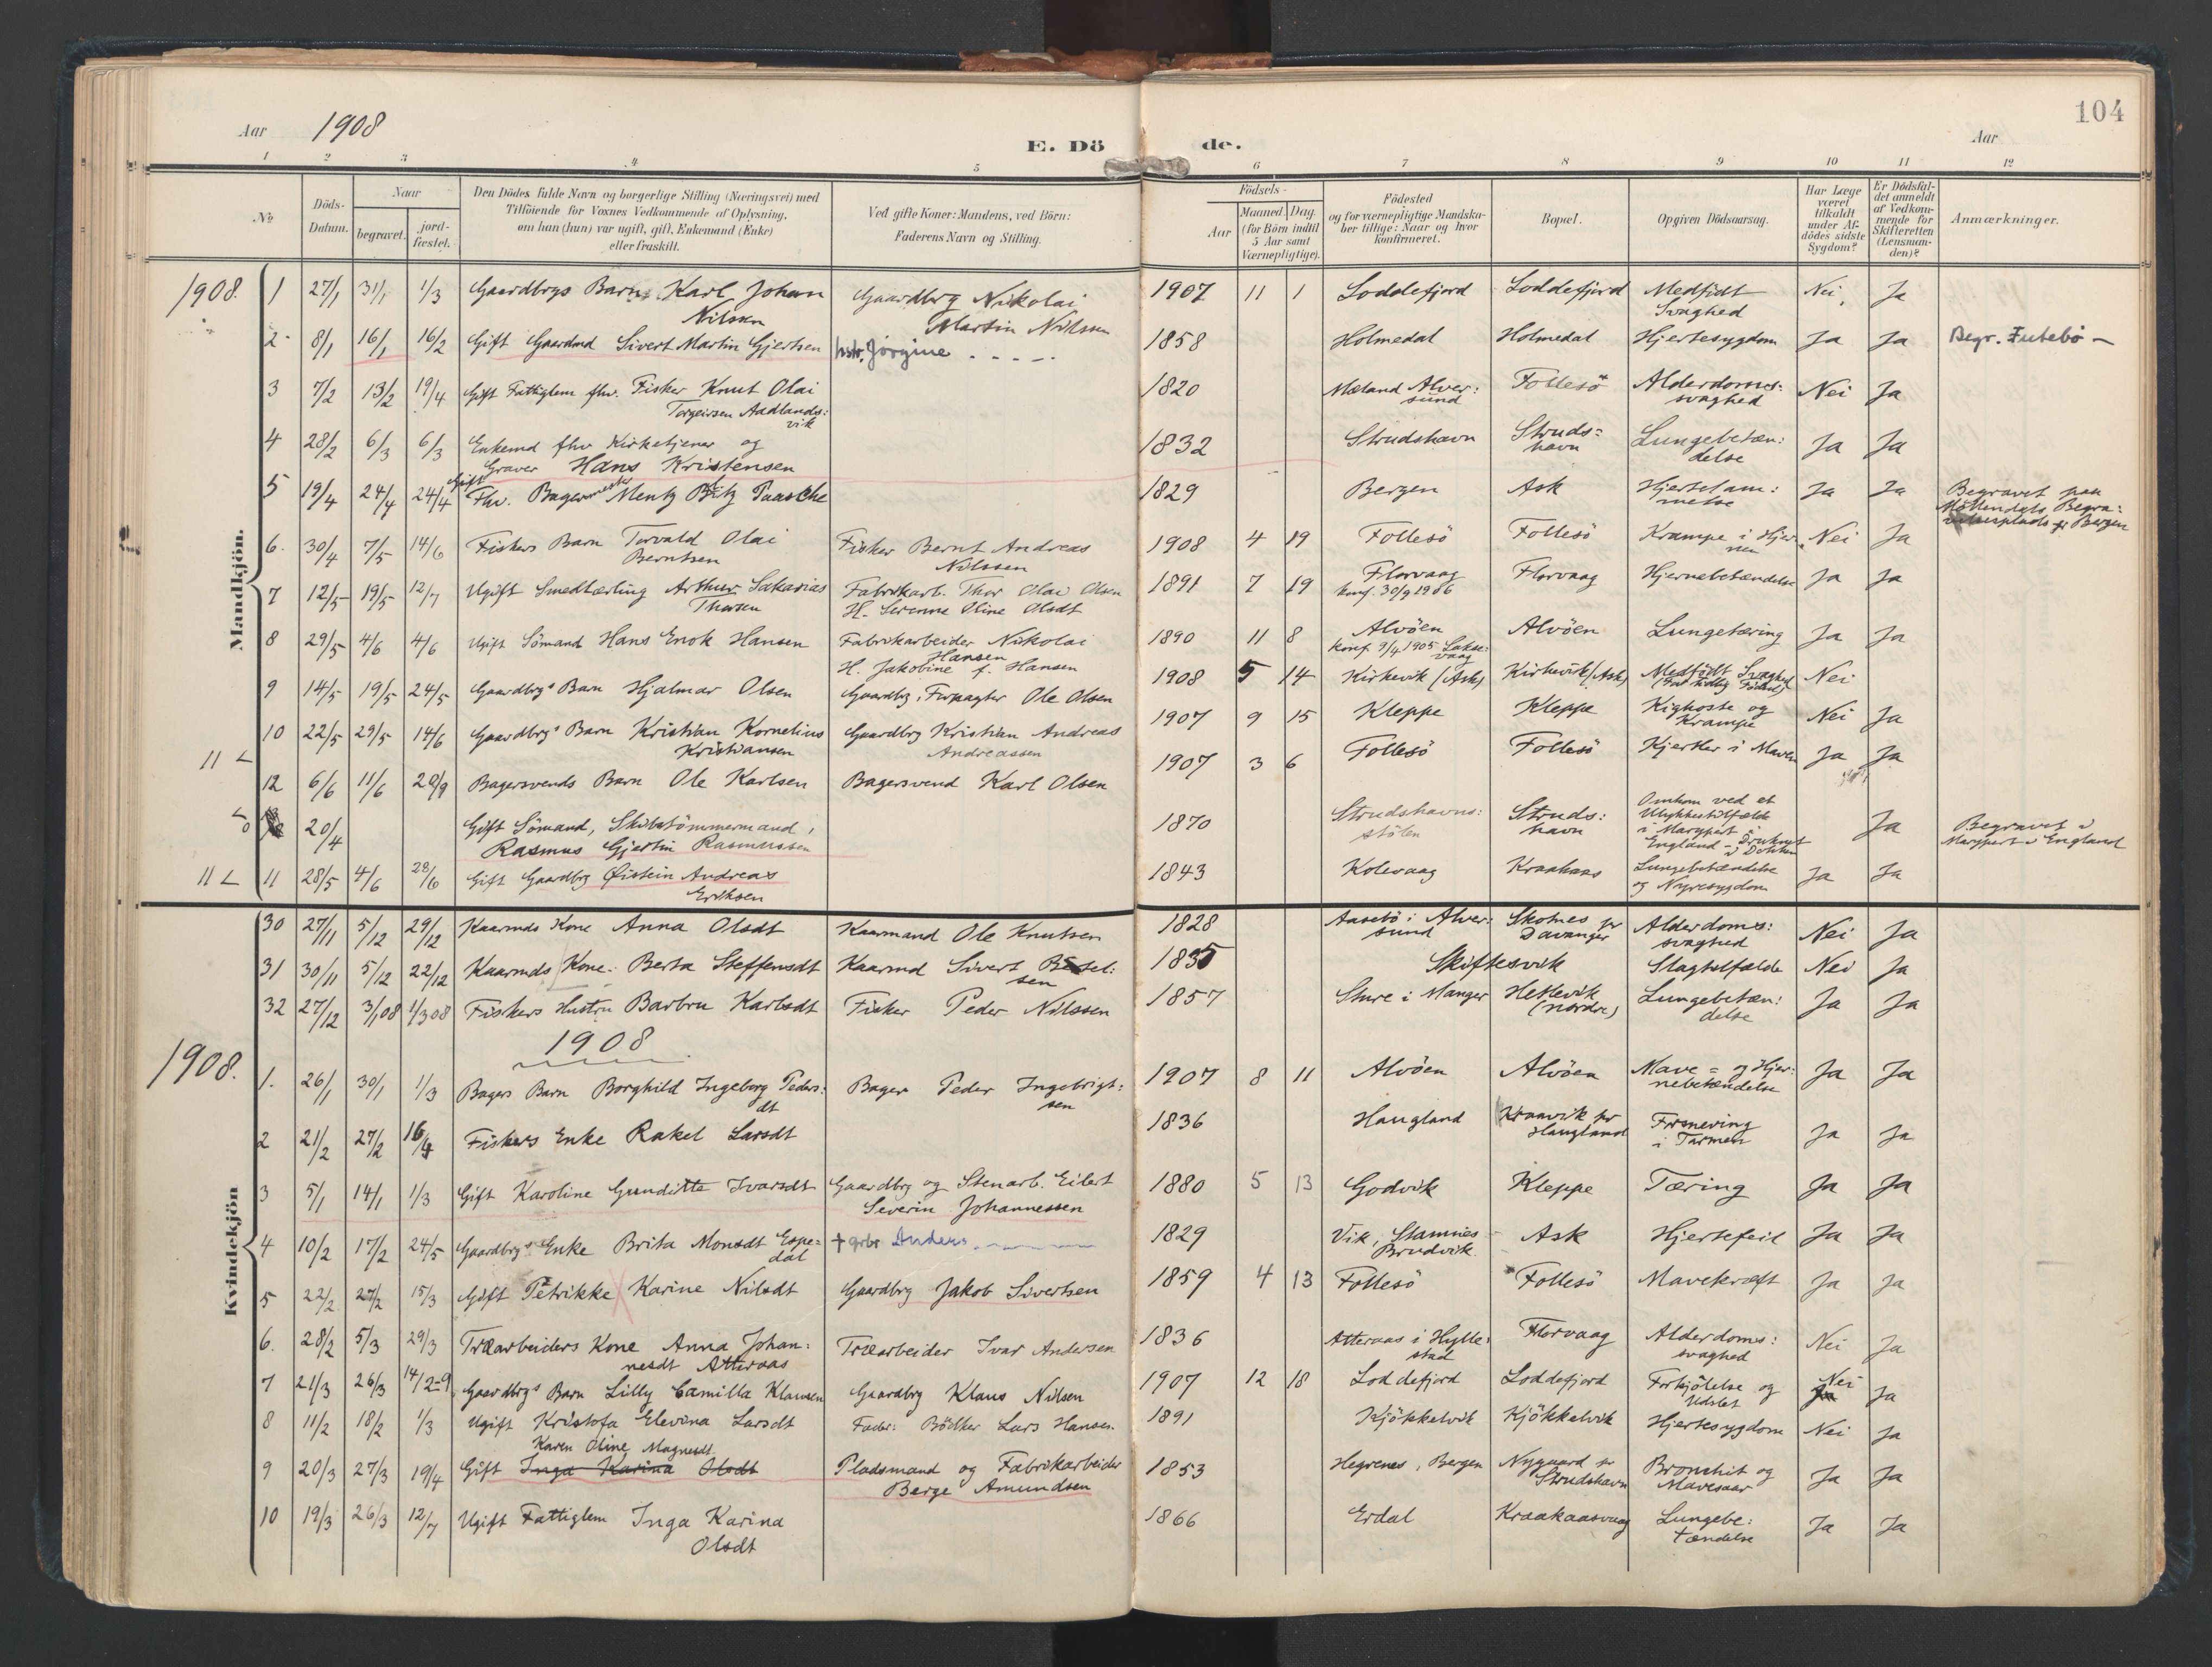 104
Aar 1908
E. Dö de.
Aar
1 2 3 4 5 6 7 8 9 10 11 12
No
Döds-Datum.
Naar
begravet.
jord-fæstet.
Den Dödes fulde Navn og borgerlige Stilling (Næringsvei) med
Tilföiende for Voxnes Vedkommende af Oplysning,
om han (hun) var ugift, gift, Enkemand (Enke)
eller fraskilt.
Ved gifte Koner: Mandens, ved Börn:
Faderens Navn og Stilling.
Födsels-
Aar
Maaned. Dag.
(for Börn indtil
5 Aar samt
Værnepligtige).
Födested
og for værnepligtige Mandska-
ber tillige: Naar og hvor
konfirmeret.
Bopæl.
Opgiven Dödsaarsag.
Har Læge
været
tilkaldt
under Af-
dödes sidste
Sygdom?
Er Dödsfal-
det anmeldt
af Vedkom-
mende for
Skifteretten
(Lensman-
den)?
Anmærkninger.
Mandkjön.
1908. 1 27/1 31/1 1/3 Gaardbrgs Barn Karl Johan Gaardbrg Nikolai 1907 11 1 Loddefjord Loddefjord Medfödt Nei Ja
Nilsen Martin Nilsen Svaghed
2 8/1 16/1 16/2 Gift Gaardmd Sivert Martin Gjertsen hstr. Jörgine 1858 Holmedal Holmedal Hjertesygdom Ja Ja Begr.
3 7/2 13/2 19/4 Gift Fattiglem fhv. Fisker Knut Olai 1820 Mæland Alver: Follesö Alderdoms: Nei Ja
Torgeirsen Aadlands: sund svaghed
vik
4 28/2 6/3 6/3 Enkemd fhv Kirketjener og 1832 Strudshavn Struds= Lungebetæn: Ja Ja
Graver Hans Kristensen havn delse
5 19/4 24/4 24/4 Gift Fhv. Bagermester Mentz Paasche 1829 Bergen Ask Hjertelam: Ja Ja Begravet paa
melse Möllendals Begra:
velsesplads Bergen
6. 30/4 7/5 14/6 Fiskers Barn Torvald Olai Fisker Bernt Andreas 1908 4 19 Follesö Follesö Krampe i Hjer Nei Ja
Berntsen Nilssen nen
7 12/5 19/5 12/7 Ugift Smedlærling Arthur Sakarias Fabrikarb. Thor Olai Olsen 1891 7 19 Florvaag Florvaag Hjernebetændelse Ja Ja
Thorsen H. Serenne Oline Olsdt konf. 30/9 1906
8 29/5 4/6 4/6 Ugift Sömand Hans Enok Hansen Fabrikarbeider Nikolai 1890 11 8 Alvöen Alvöen Lungetæring Ja Ja
Hansen konf. 9/4 1905 Lakse:
H. Jakobine f. Hansen vaag
9 14/5 19/5 24/5 Gaardbrgs Barn Hjalmar Olsen Gaardbr, Forpagter Ole Olsen 1908 5 14 Kirkevik (Ask) Kirkevik (Ask) Medfödt Svaghed Nei
(For tidlig Födsel)
10 22/5 29/5 14/6 Gaardbrgs Barn Kristian Kornelius Gaardbrg Kristian Andreas 1907 9 15 Kleppe Kleppe Kighoste og Nei Ja
Kristiansen Andreassen Krampe
11
12 6/6 11/6 20/9 Bagersvends Barn Ole Karlsen Bagersvend Karl Olsen 1907 3 6 Follesö Follesö Kjertler i Maven Ja Ja
20/4 Gift Sömand, Skibstömmermand, 1870 Strudshavns: Struds: Omkom ved et Ja Begravet i
Rasmus Gjertin Rasmussen stölen havn Ulykkestilfælde Marypert i England
i Marypert i
England - Druknet
i Dokken
11 11 28/5 4/6 28/6 Gift Gaardbrg Öistein Andreas 1843 Kolevaag Kraakaas Lungebetændelse Ja Ja
Eriksen og Nyresygdom
Kvindekjön
30 27/11 5/12 29/12 Kaarmds Kone Anna Olsdt Kaarmand Ole Knutsen 1828 Aasebö i Alver: Skotnes pr Alderdoms: Nei Ja
sund Davanger svaghed
31 30/11 5/12 22/12 Kaarmds Kone Berta Steffensdt Kaarmd Sivert Bessel: 1835 Skiftesvik Slagtilfælde Nei Ja
sen
32 27/12 3/1 08 1/3 08 Fiskers Hustru Barbru Karlsdt Fisker Peder Nilssen 1857 Sture i Manger Hettevik Lungebetæn: Ja Ja
(nordre) delse
1908
1908. 1. 26/1 30/1 1/3 Bagers Barn Borghild Ingeborg Peders: Bager Peder Ingebrigt: 1907 8 11 Alvöen Alvöen Mave= og Hjer: Ja Ja
dt sen nebetændelse
2 21/2 27/2 16/4 Fiskers Enke Rakel Larsdt 1836 Haugland Kraavik pr Forsnevring Ja Ja
Haugland i Tarmen
3 5/1 14/1 1/3 Gift Karoline Gunditte Ivarsdt Gaardbrg og Stenarb. Eilert 1880 5 13 Godvik Kleppe Tæring Ja Ja
Severin Johannessen
4 10/2 17/2 24/5 Gaardbrgs Enke Brita Monsdt Espe= † grbr Anders 1829 Vik, Stamnes Ask Hjertefeil Ja Ja
dal Brudvik.
5 22/2 27/2 15/3 Gift Petrikke Karine Nilsdt Gaardbrg Jakob Sivertsen 1859 4 13 Follesö Follesö Mavekræft Ja Ja
6. 28/2 5/3 29/3 Træarbeiders Kone Anna Johan: Træarbeider Ivar Andersen 1836 Atteraas i Hylle: Florvaag Alderdoms: Nei Ja
nesdt Atteraas stad svaghed
7 21/3 26/3 14/2-9 Gaardbrgs Barn Lilly Camilla Klausen Gaardbrg Klaus Nilsen 1907 12 18 Loddefjord Loddefjord Forkjölelse og Nei Ja
Udslet
8 11/2 18/2 1/3 Ugift Kristofa Elevina Larsdt Fader: Bödker Lars Hansen. 1891 Kjökkelvik Kjökkelvik Hjertesygdom Nei Ja
Karen Oline Magnesdt
9 20/3 27/3 19/4 Gift Inga Karina Olsdt Pladsmand og Fabrikarbeider 1853 Hegrenes, Bergen Nygaard pr Bronchit og Ja Ja
Berge Amundsen Strudshavn Mavesaar
10 19/3 26/3 12/7 Ugift Fattiglem Inga Karina 1866 Erdal Kraakaasvaag Lungebe: Ja Ja
Olsdt tændelse